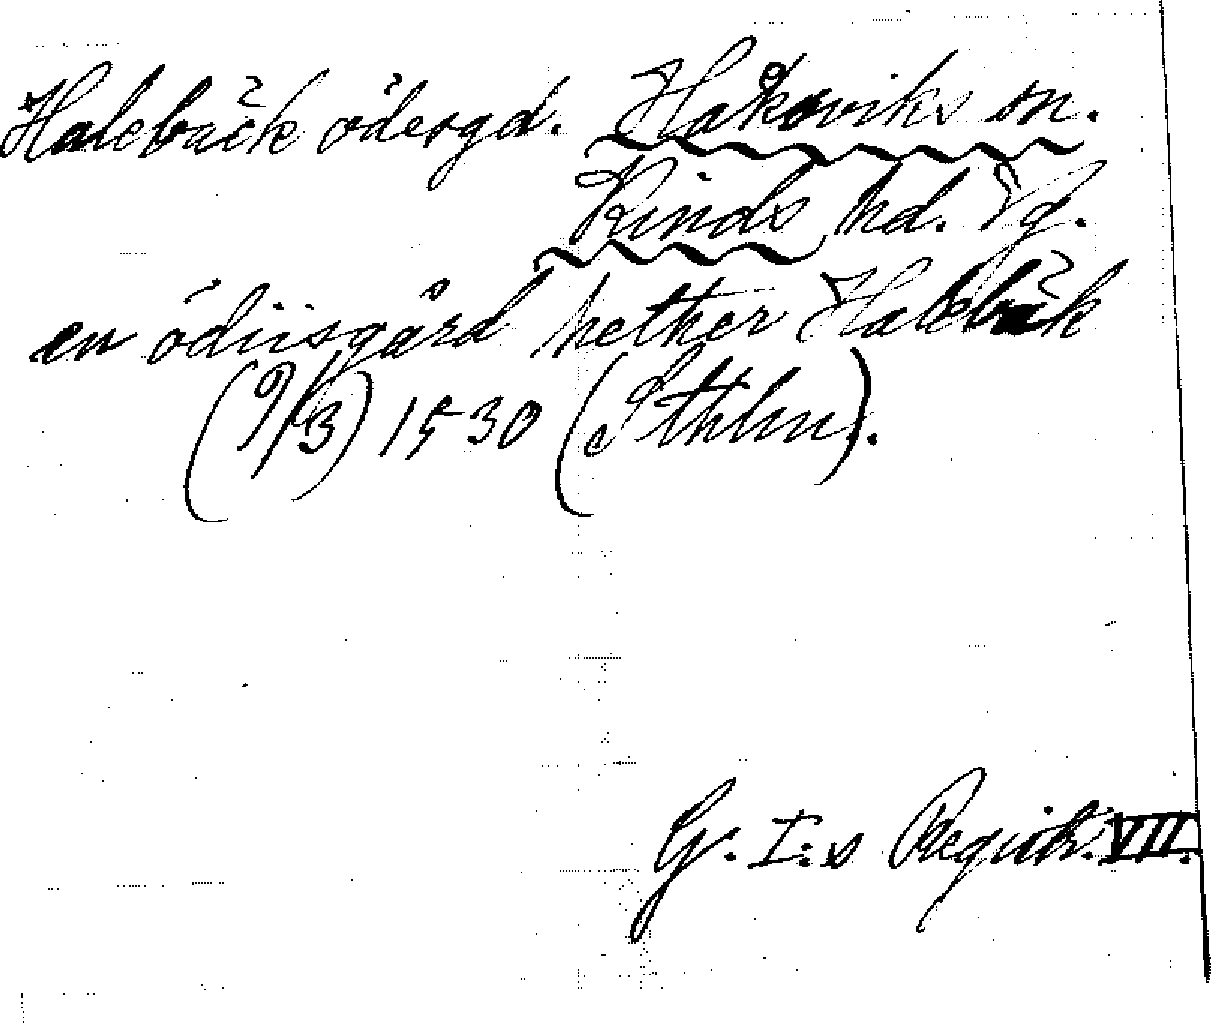 Halebäck ödesgd. Håksviks sn.
Kinds hd. Vg.
en ödiisgård hether Halebäk
(9/3) 1530 (Sthlm).
G. I:s Registr. VII.